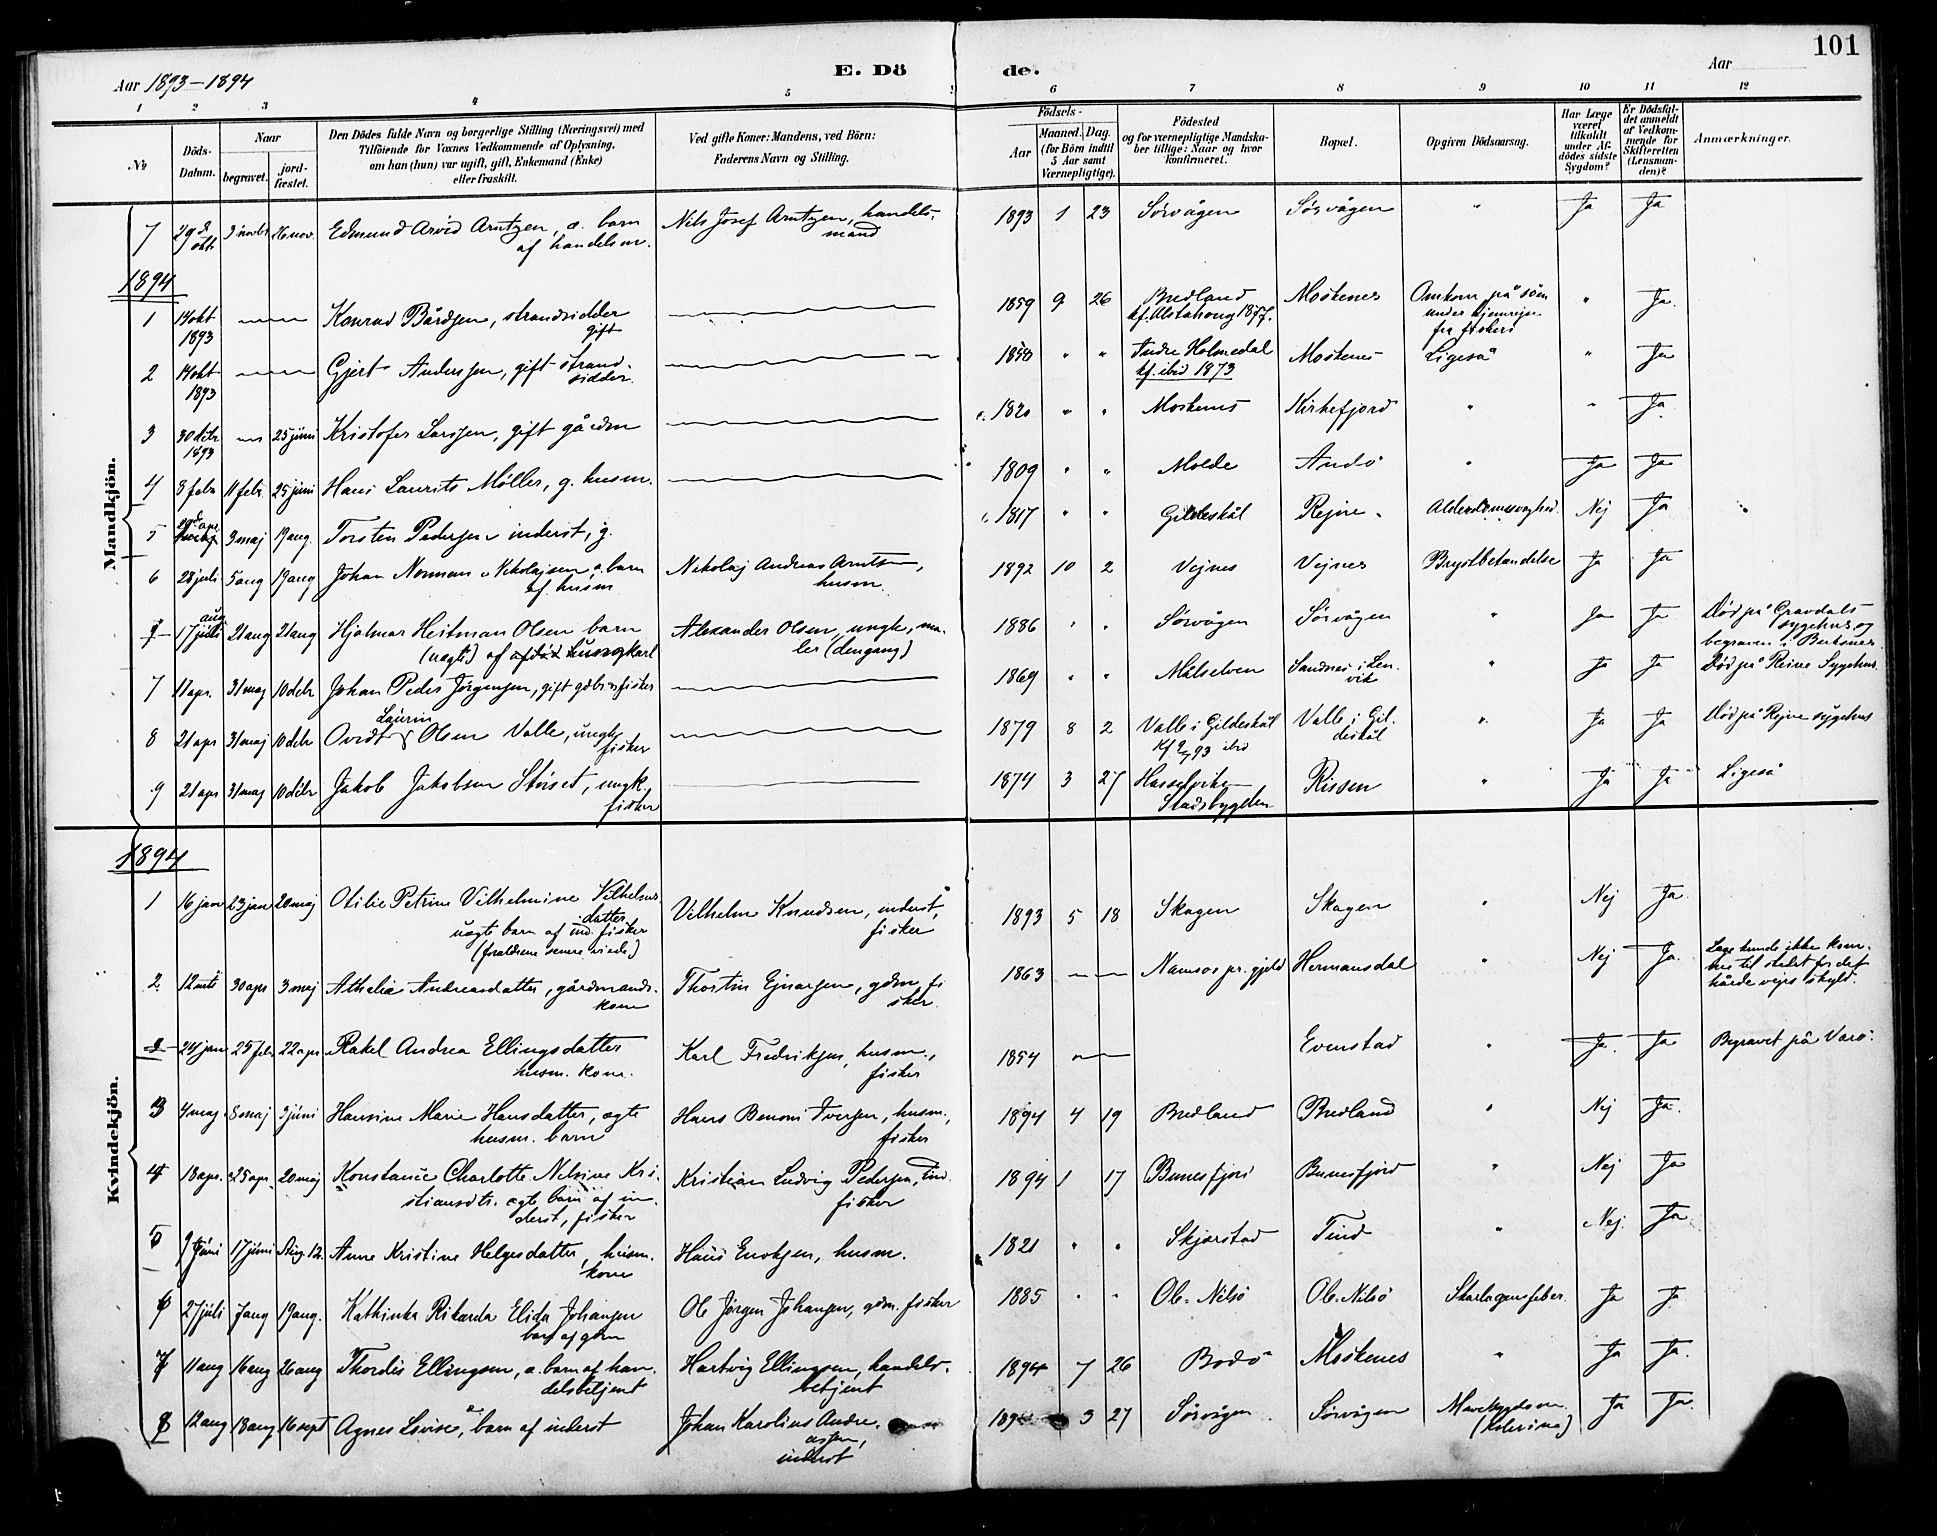 101
Aar 1893-1894
E. Dö de.
Aar
1 2 3 4 5 6 7 8 9 10 11 12
No
Döds-Datum.
Naar
begravet.
jord-fæstet.
Den Dödes fulde Navn og borgerlige Stilling (Næringsvei) med
Tilföiende for Voxnes Vedkommende af Oplysning,
om han (hun) var ugift, gift, Enkemand (Enke)
eller fraskilt.
Ved gifte Koner: Mandens, ved Börn:
Faderens Navn og Stilling.
Födsels-
Aar
Maaned. Dag.
(for Börn indtil
5 Aar samt
Værnepligtige).
Födested
og for værnepligtige Mandska-
ber tillige: Naar og hvor
konfirmeret.
Bopæl.
Opgiven Dödsaarsag.
Har Læge
været
tilkaldt
under Af-
dödes sidste
Sygdom?
Er Dödsfal-
det anmeldt
af Vedkom-
mende for
Skifteretten
(Lensman-
den)?
Anmærkninger.
Mandkjön.
7 29 okt. 3 novbr 26 nov. Edmund Arvid Arntzen, æ. barn af handelsm. Nils Josef Arntzen, handels-mand 1893 1 23 Sörvågen Sörvågen " Ja Ja
1894
1 14 okt 1893 Konrad Bårdsen, strandsidder gift 1859 9 26 Bredland kf. Alstahoug 1877. Moskenes Omkom på söen under hjemrejse fra fiskeri " Ja
2 14 okt 1893 Gjert Anderssen, gift strand-sidder 1858 " " Indre Holmedal kf. ibid 1873 Moskenes Ligeså " Ja
3 30 debr 1893 25 juni Kristofer Larssen, gift gårdm c. 1820 " " Moskenes Kirkefjord " " Ja
4 8 febr 11 febr 25 juni Hans Laurits Möller, g. husm. 1809 " " Molde Andö " Ja Ja
5 apr. 3 maj 19 aug. Torsten Pedersen inderst, g. c. 1817 " " Gildeskål Rejne Alderdomssvaghed. Nej Ja
6 28 juli 5 aug 19 aug Johan Norman Nikolajsen æ. barn af husm Nikolaj Andreas Arntsen, husm. 1892 10 2 Vejnes Vejnes Brystbetændelse Ja Ja
7 17 juli aug 21 aug 21 aug Hjalmar Heitman Olsen barn (uægte) af ungkarl Alexander Olsen ungk., ma-ler (dengang) 1886 " " Sörvågen Sörvågen " Ja Ja Död på Gravdals sygehus og begraven i Buksnes
7 17 apr. 31 maj 10 debr Johan Peder Jörgensen, gift gdbr fisker 1869 " " Målselven Sandnes i Len-vik " Ja Ja Död på Reine Sygehus
8 21 apr 31 maj 10 debr Ovidt Laurin Olsen Valle, ungk. fisker 1879 8 2 Valle i Gildeskål kf 2/7 93 ibid Valle i Gil-deskål " Ja Ja Död på Rejne sygehus
9 21 apr 31 maj 10 debr Jakob Jakobsen Störset, ungk. fisker 1874 3 27 Hasselviken Stadsbygden Rissen " Ja Ja Ligeså
Kvindekjön.
1894
1 16 jan 23 jan 20 maj Otilie Petrine Vilhelmine Vilhelms-datter uægte barn af ind. fisker (forældrene senere viede) Vilhelm Knudsen, inderst, fisker 1893 5 18 Skagen Skagen " Nej Ja
2 12 mts 30 apr 3 maj Athalia Andreasdatter, gårdmands-kone Thostin Ejnarsen, gdm. fi-sker. 1863 Namsos pr.gjeld Hermansdal " Nej Ja Læge kunde ikke kom-me til stedet for det hårde vejrs skyld.
3 24 jan 25 febr 22 apr Rakel Andrea Ellingsdatter husm. kone. Karl Fredriksen, husm., fisker 1854 Evenstad " Ja Ja Begravet på Værö.
3 4 maj 8 maj 3 juni Hansine Marie Hansdatter, ægte husm. barn Hans Benoni Iversen, husm., fisker 1894 4 19 Bredland Bredland " Nej Ja
4 18 apr. 25 apr. 20 maj Konstance Charlotte Nelsine Kri-stiansdtr. ægte barn af in-derst, fisker Kristian Ludvig Pedersen, ind. fisker 1894 1 17 Bunesfjord Bunesfjord " Nej Ja
5 9 juni 17 juni Aug. 12. Anne Kristine Helgesdatter, husm. kone Hans Enoksen, husm. 1821 " " Skjerstad Tind " Nej Ja
6 27 juli 7 aug 19 aug. Kathinka Rikarda Elida Johansen barn af gdm Ole Jörgen Johansen, gdm. fisker 1885 " " Ole-Nilsö Ole-Nilsö Skarlagensfeber. Ja Ja
7 11 aug 16 aug 26 aug Thordis Ellingsen, æ. barn af han-delsbetjent Hartvig Ellingsen, handels-betjent 1894 7 26 Bodö Moskenes " Ja Ja
8 12 aug 18 aug 16 sept Agnes Lovise, barn af inderst Johan Karolius Andre-assen, inderst 189 3 27 Sörvågen Sörvågen Mavesygdom (kolerine) Ja Ja